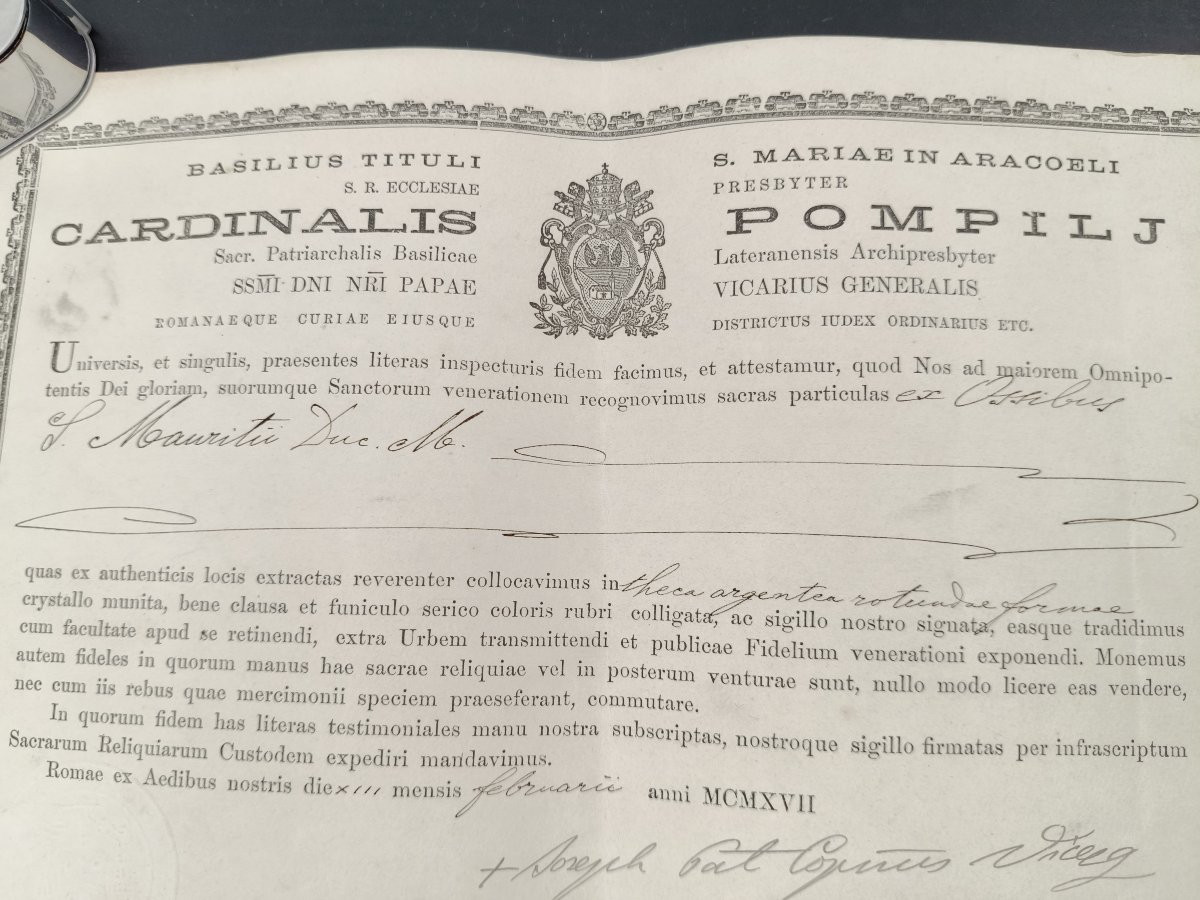 BASILIUS TITULI S. MARIAE IN ARACOELI
S. R. ECCLESIAE PRESBYTER
CARDINALIS POMPILJ
Sacr. Patriarchalis Basilicae Lateranensis Archipresbyter
SSM̅I DNI NR̅I PAPAE VICARIUS GENERALIS
ROMANAEQUE CURIAE EIUSQUE DISTRICTUS IUDEX ORDINARIUS ETC.
Universis, et singulis, praesentes literas inspecturis fidem facimus, et attestamur, quod Nos ad maiorem Omnipo-
tentis Dei gloriam, suorumque Sanctorum venerationem recognovimus sacras particulas ex Ossibus
S. Mauritii Duc. M.
quas ex authenticis locis extractas reverenter collocavimus in theca argentea rotundae formae
crystallo munita, bene clausa et funiculo serico coloris rubri colligata, ac sigillo nostro signata, easque tradidimus
cum facultate apud se retinendi, extra Urbem transmittendi et publicae Fidelium venerationi exponendi. Monemus
autem fideles in quorum manus hae sacrae reliquiae vel in posterum venturae sunt, nullo modo licere eas vendere,
nec cum iis rebus quae mercimonii speciem praeseferant, commutare.
In quorum fidem has literas testimoniales manu nostra subscriptas, nostroque sigillo firmatas per infrascriptum
Sacrarum Reliquiarum Custodem expediri mandavimus.
Romae ex Aedibus nostris die XIII mensis februarii anni MCMXVII
+ Joseph Pat